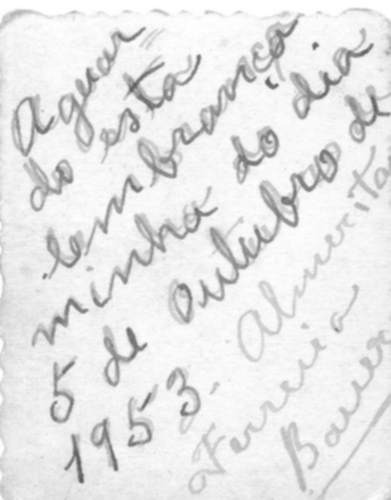 Aguar=
do esta
lembrança
minha do dia
5 de Outubro de
1953. Almerita
Ferreira